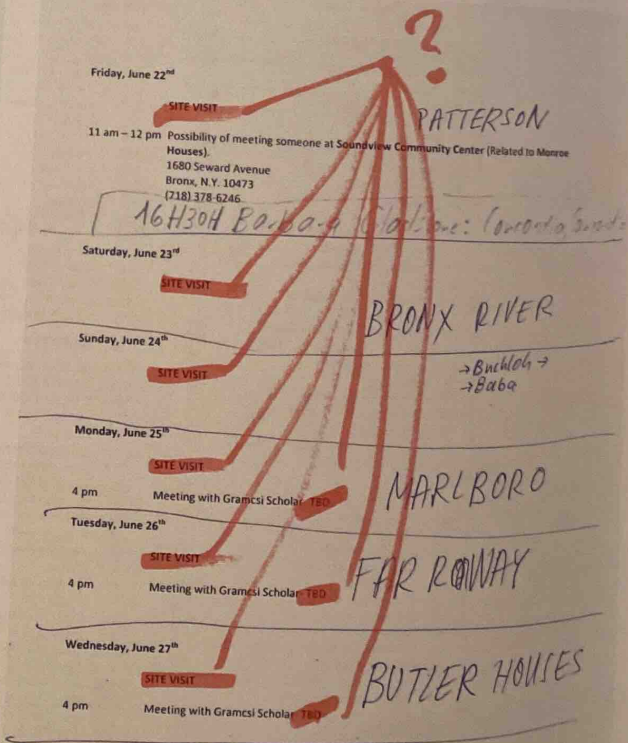 ?
Friday, June 22nd
SITE VISIT
PATTERSON
11 am – 12 pm Possibility of meeting someone at Soundview Community Center (Related to Monroe
Houses).
1680 Seward Avenue
Bronx, N.Y. 10473
(718) 378-6246
16H30H Barbara Gladstone:
Saturday, June 23rd
SITE VISIT
BRONX RIVER
Sunday, June 24th
SITE VISIT
→Buchloh→
→Baba
Monday, June 25th
SITE VISIT
MARLBORO
4 pm Meeting with Gramcsi Scholar TBD
Tuesday, June 26th
SITE VISIT
FAR ROWAY
4 pm Meeting with Gramcsi Scholar TBD
Wednesday, June 27th
SITE VISIT
BUTLER HOUSES
4 pm Meeting with Gramcsi Scholar TBD